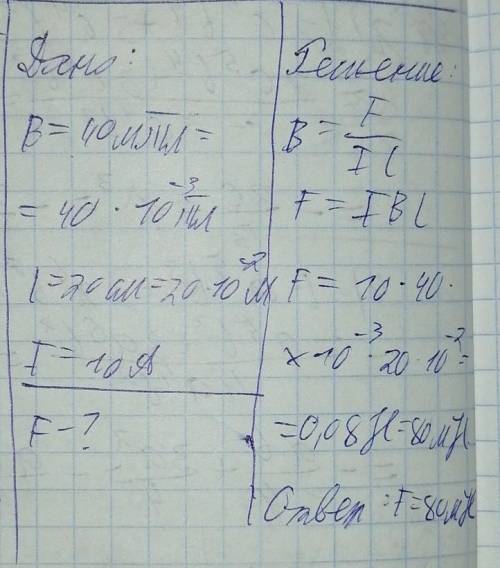 Дано:
B = 40 мТл =
= 40 · 10⁻³ Тл
l = 20 см = 20 · 10⁻² м
I = 10 А
F - ?
Решение:
B = F / I l
F = I B l
F = 10 · 40 ·
× 10⁻³ · 20 · 10⁻² =
= 0,08 Н = 80 мН
Ответ: F = 80 мН